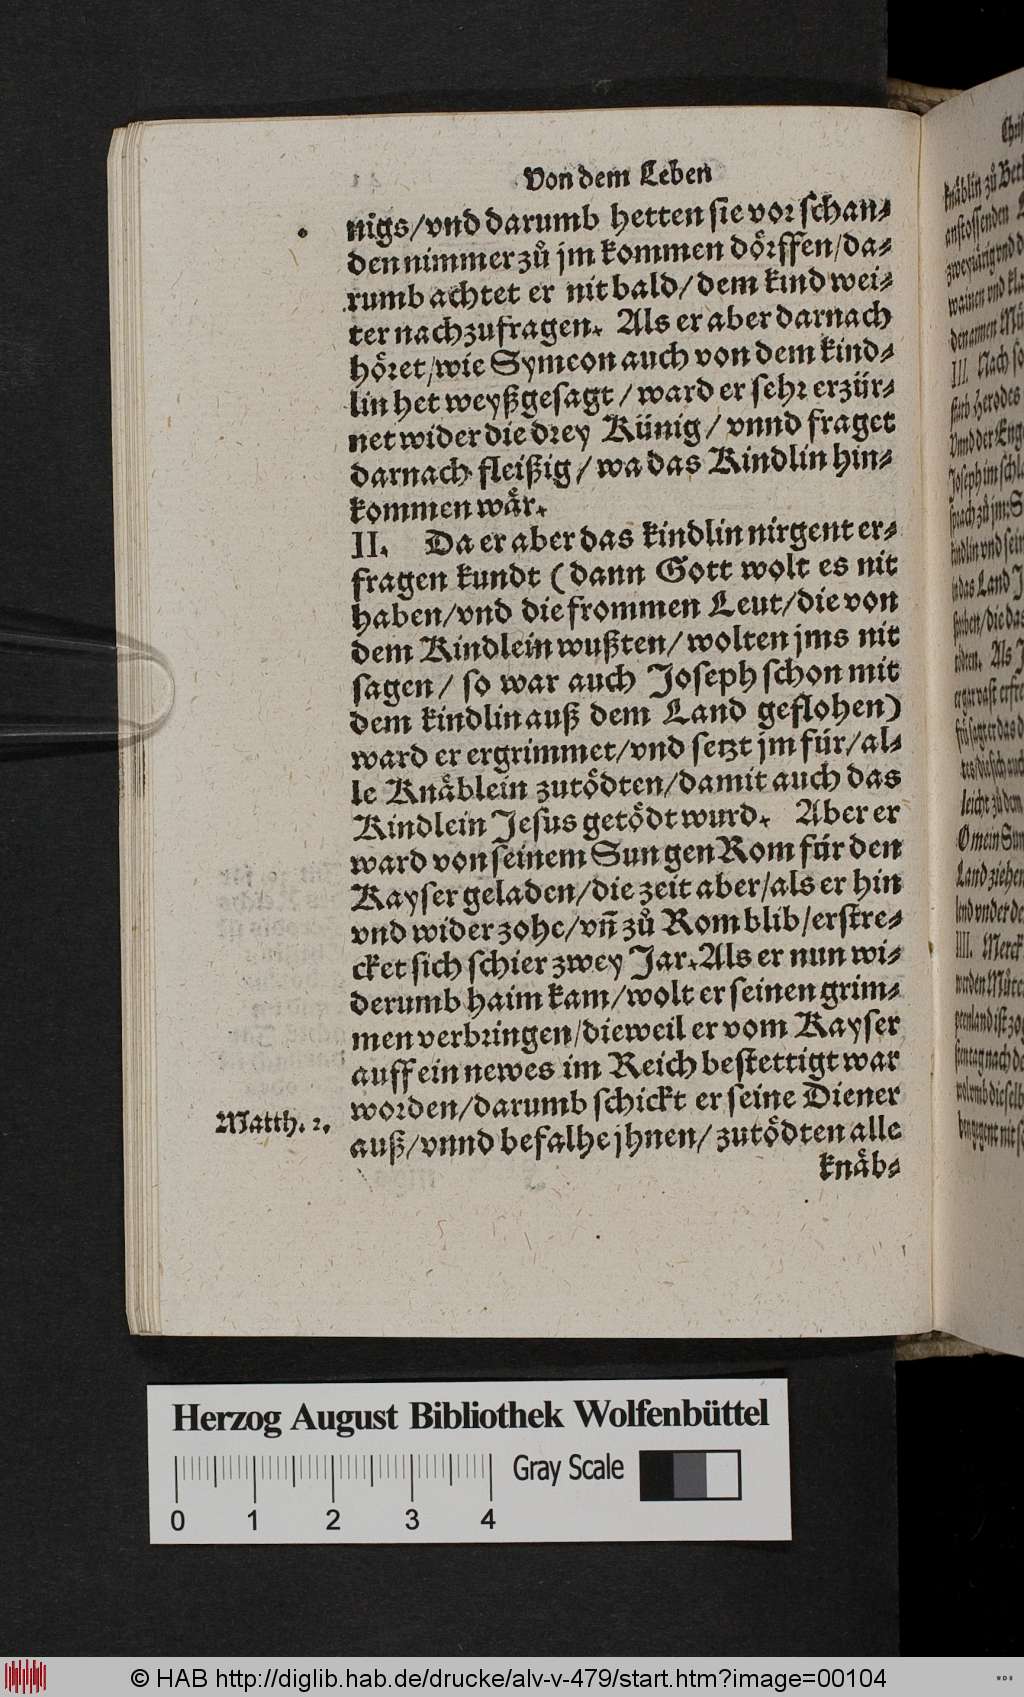 Von dem Leben
nigs/vnd darumb hetten sie vor schan⸗
den nimmer zů jm kommen dörffen/da⸗
rumb achtet er nit bald/dem kind wei⸗
ter nachzufragen. Als er aber darnach
höret/wie Symeon auch von dem kind⸗
lin het weyßgesagt/ward er sehr erzür⸗
net wider die drey Künig/vnnd fraget
darnach fleißig/wa das Kindlin hin⸗
kommen wår.
II. Da er aber das kindlin nirgent er⸗
fragen kundt (dann Gott wolt es nit
haben/vnd die frommen Leut/die von
dem Kindlein wußten/wolten jms nit
sagen/so war auch Joseph schon mit
dem kindlin auß dem Land geflohen)
ward er ergrimmet/vnd setzt jm für/al⸗
le Knåblein zutödten/damit auch das
Kindlein Jesus getödt wurd. Aber er
ward von seinem Sun gen Rom für den
Kayser geladen/die zeit aber/als er hin
vnd wider zohe/vñ zů Rom blib/erstre⸗
cket sich schier zwey Jar. Als er nun wi⸗
derumb haim kam/wolt er seinen grim⸗
men verbringen/dieweil er vom Kayser
auff ein newes im Reich bestettigt war
worden/darumb schickt er seine Diener
Matth. 2.
auß/vnnd befalhe jhnen/zutödten alle
knåb⸗
knåblin zů
anstossenden
wainen vnd
III. Nach
starb Herodes
Vnnd der
Joseph im
sprach zů jm:
kindlin vnd
in das Land
Als
leicht zů dem
O mein
Land ziehen
IIII. Merck
Herzog August Bibliothek Wolfenbüttel
Gray Scale
0 1 2 3 4
© HAB http://diglib.hab.de/drucke/alv-v-479/start.htm?image=00104